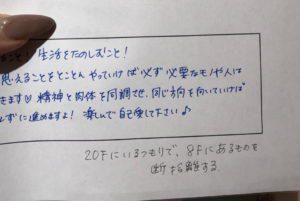 生活をたのしむこと!
思えることをとことんやっていけば必ず必要なモノや人は
きます♡ 精神と肉体を同調させ、同じ方向を向いていけば
ずに進めますよ! 楽しんで自愛して下さい♪
20Fにいるつもりで、8Fにあるものを
断捨離する